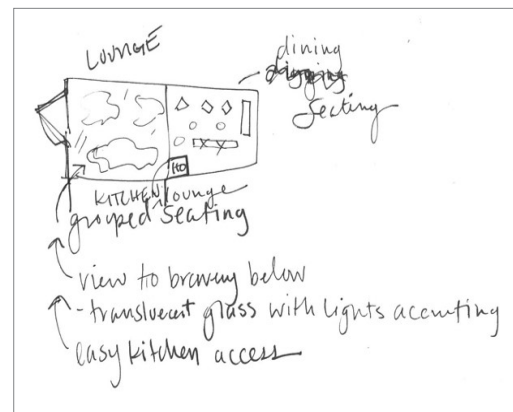 LOUNGE
dining
Seating
HO
KITCHEN lounge
grouped seating
view to brewery below
- translucent glass with lights accenting
easy kitchen access